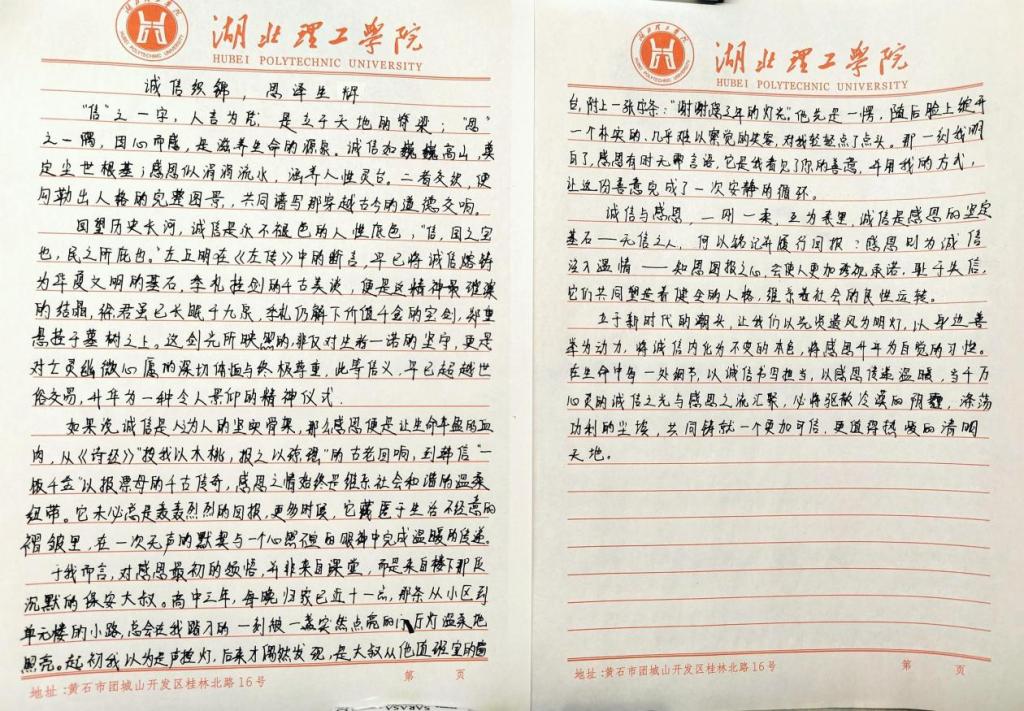 湖北理工學院
HUBEI POLYTECHNIC UNIVERSITY
诚信织锦，恩泽生辉
“信”之一字，人言为凭，是立于天地的脊梁；“恩”
之一隅，因心而感，是滋养生命的源泉。诚信如巍巍高山，奠
定尘世根基；感恩似涓涓流水，涵养人性灵台。二者交织，便
勾勒出人格的完整图景，共同谱写那穿越古今的道德交响。
回望历史长河，诚信是永不褪色的人性底色；“信，国之宝
也，民之所庇也。”左丘明在《左传》中的断言，早已将诚信熔铸
为华夏文明的基石。季札挂剑的千古美谈，便是这精神最璀璨
的结晶，徐君虽已长眠于九泉，季札仍解下价值千金的宝剑，郑重
悬挂于墓树之上。这剑光所映照的非仅对生者一诺的坚守，更是
对亡灵幽微心愿的深切体恤与终极尊重，此等信义，早已超越世
俗交易，升华为一种令人景仰的精神仪式。
如果说诚信是人为人的坚实骨架，那么感恩便是让生命丰盈的血
肉，从《诗经》“投我以木桃，报之以琼瑶”的古老回响，到韩信“一
饭千金”以报漂母的千古传奇，感恩之情始终是维系社会和谐的温柔
纽带。它未必总是轰轰烈烈的回报，更多时候，它藏匿于生活不经意的
褶皱里，在一次无声的默契与一个心照不宣的眼神中完成温暖的传递。
于我而言，对感恩最初的领悟，并非来自课堂，而是来自楼下那位
沉默的保安大叔。高中三年，每晚归家已近十一点，那条从小区到
单元楼的小路，总会在我踏入的一刻被一盏突然点亮的门厅灯温柔地
照亮。起初我以为是声控灯，后来才偶然发现，是大叔从他值班室的窗
地址：黄石市团城山开发区桂林北路16号 第 页
SARASA
湖北理工學院
HUBEI POLYTECHNIC UNIVERSITY
台，附上一张字条：“谢谢您三年的灯光”。他先是一愣，随后脸上绽开
一个朴实的、几乎难以察觉的笑容，对我轻轻点了点头。那一刻我明
白了，感恩有时无需言语，它是我看见了你的善意，并用我的方式，
让这份善意完成了一次安静的循环。
诚信与感恩，一刚一柔，互为表里，诚信是感恩的坚定
基石——无信之人，何以铭记并履行回报？感恩则为诚信
注入温情——知恩图报之心，会使人更加珍视承诺，耻于失信，
它们共同塑造着健全的人格，维系着社会的良性运转。
立于新时代的潮头，让我们以先贤遗风为明灯，以身边善
举为动力，将诚信内化为不变的本色，将感恩升华为自觉的习性。
在生命中每一处细节，以诚信书写担当，以感恩传递温暖，当千万
心灵的诚信之光与感恩之流汇聚，必将驱散冷漠的阴霾，涤荡
功利的尘埃，共同铸就一个更加可信、更值得热爱的清明
天地。
地址：黄石市团城山开发区桂林北路16号 第 页